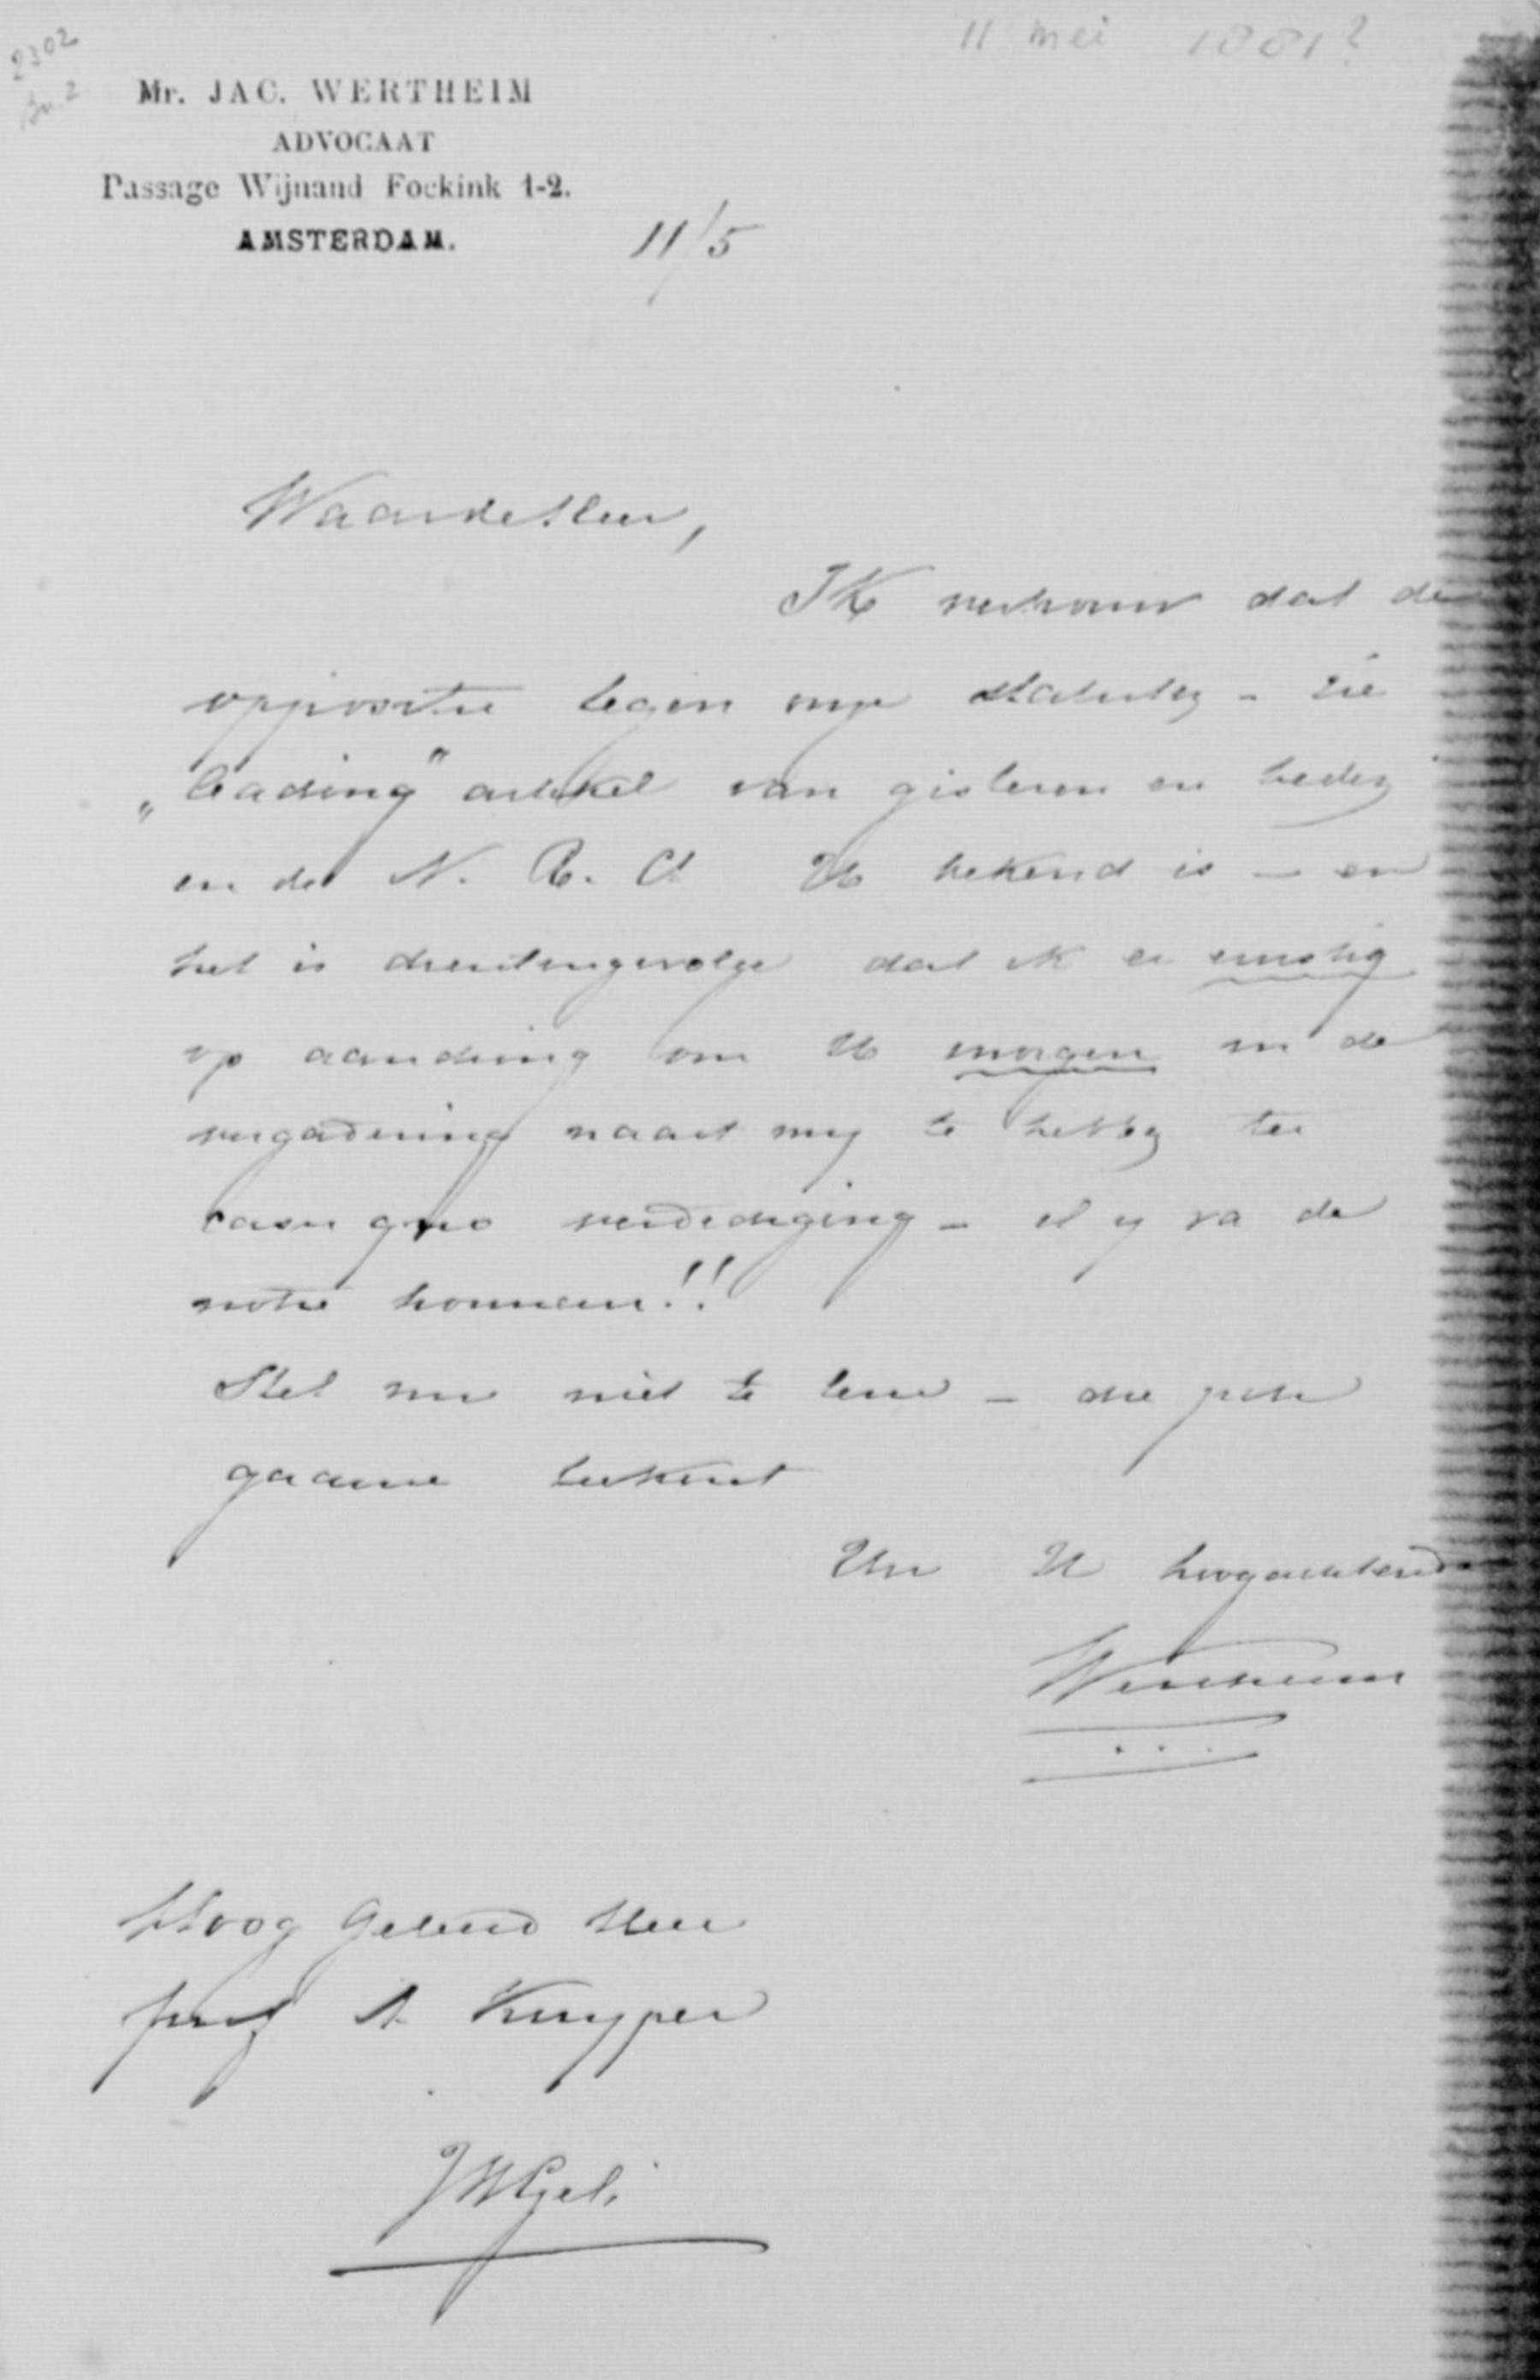 11 mei 1881?
2302
Mr. JAC. WERTHEIM
ADVOCAAT
Passage Wijnand Fockink 1-2.
AMSTERDAM.
11/5
Waarde Heer,
Ik vertrouw dat de
oppositie tegen onze statuten - zie
„leading" artikel van gisteren en heden
in de N. R. Ct U bekend is - en
het is dientengevolge dat ik er ernstig
op aandring om U morgen in de
vergadering naast mij te hebben ter
casu quo verdediging - il y va de
notre honneur!!
Stel me niet te leur - die
gaarne teekent
Uw U hoogachtend
Wertheim
Hoog Geleerd Heer
prof A Kuyper